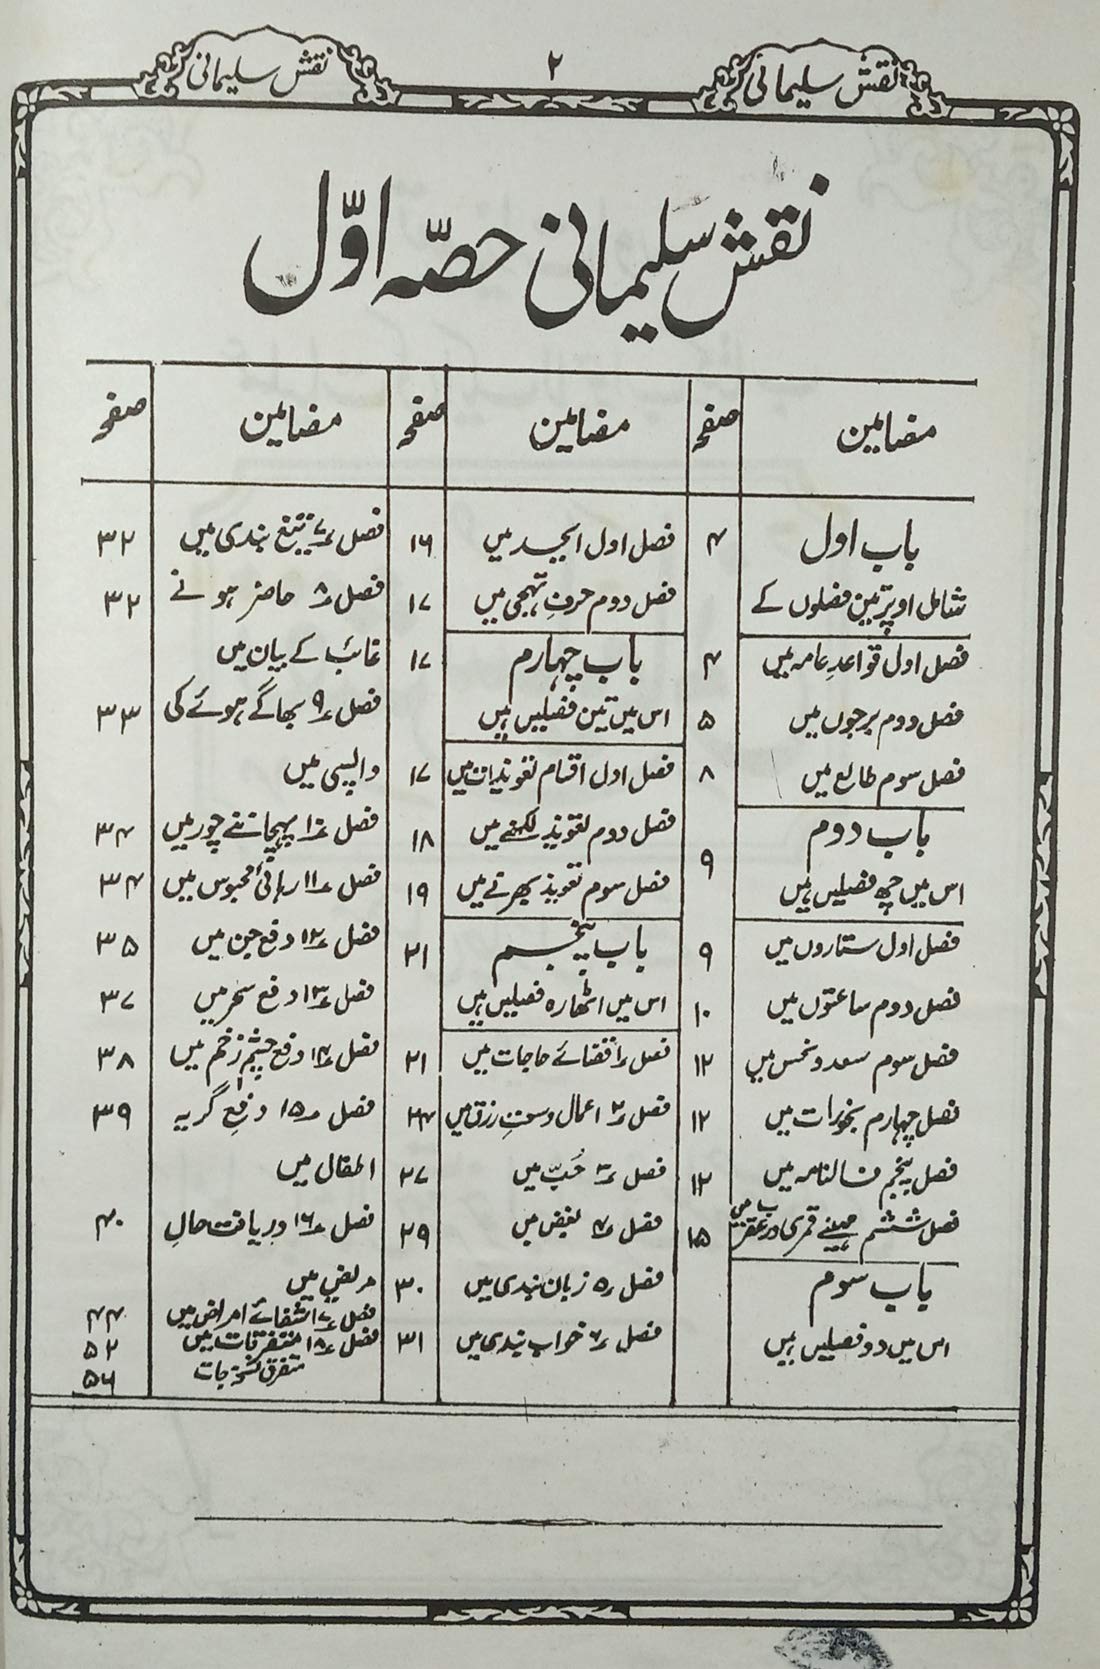 نقش سلیمانی
۲
نقش سلیمانی
نقش سلیمانی حصّہ اوّل
مضامین
صفحہ
باب اول
۴
شامل اوپر تین فصلوں کے
فصل اول قواعدِ عامہ میں
۴
فصل دوم برجوں میں
۵
فصل سوم طالع میں
۸
باب دوم
اس میں چھ فصلیں ہیں
۹
فصل اول ستاروں میں
۹
فصل دوم ساعتوں میں
۱۰
فصل سوم سعد و نحس میں
۱۲
فصل چہارم بخورات میں
۱۲
فصل پنجم فالنامہ میں
۱۲
فصل ششم مہینے قمری در عقرب میں
۱۵
باب سوم
اس میں دو فصلیں ہیں
مضامین
صفحہ
فصل اول ابجد میں
۱۶
فصل دوم حرفِ تہجی میں
۱۷
باب چہارم
۱۷
اس میں تین فصلیں ہیں
فصل اول اقسام تعویذات میں
۱۷
فصل دوم تعویذ لکھنے میں
۱۸
فصل سوم تعویذ بھرنے میں
۱۹
باب پنجم
۲۱
اس میں اٹھارہ فصلیں ہیں
فصل ۱ قضائے حاجات میں
۲۱
فصل ۲ اعمال وسعتِ رزق میں
۲۴
فصل ۳ حُبّ میں
۲۷
فصل ۴ بغض میں
۲۹
فصل ۵ زبان بندی میں
۳۰
فصل ۶ خواب بندی میں
۳۱
مضامین
صفحہ
فصل ۷ تیغ بندی میں
۳۲
فصل ۸ حاضر ہونے
۳۲
غائب کے بیان میں
فصل ۹ بھاگے ہوئے کی
۳۳
واپسی میں
فصل ۱۰ پہچاننے چور میں
۳۴
فصل ۱۱ رہائی محبوس میں
۳۴
فصل ۱۲ دفع جن میں
۳۵
فصل ۱۳ دفع سحر میں
۳۷
فصل ۱۴ دفع چشم زخم میں
۳۸
فصل ۱۵ دفعِ گریہ
۳۹
اطفال میں
فصل ۱۶ دریافت حالِ
۴۰
مریض میں
فصل ۱۷ شفائے امراض میں
۴۴
فصل ۱۸ متفرقات میں
۵۲
متفرق نسخہ جات
۵۶